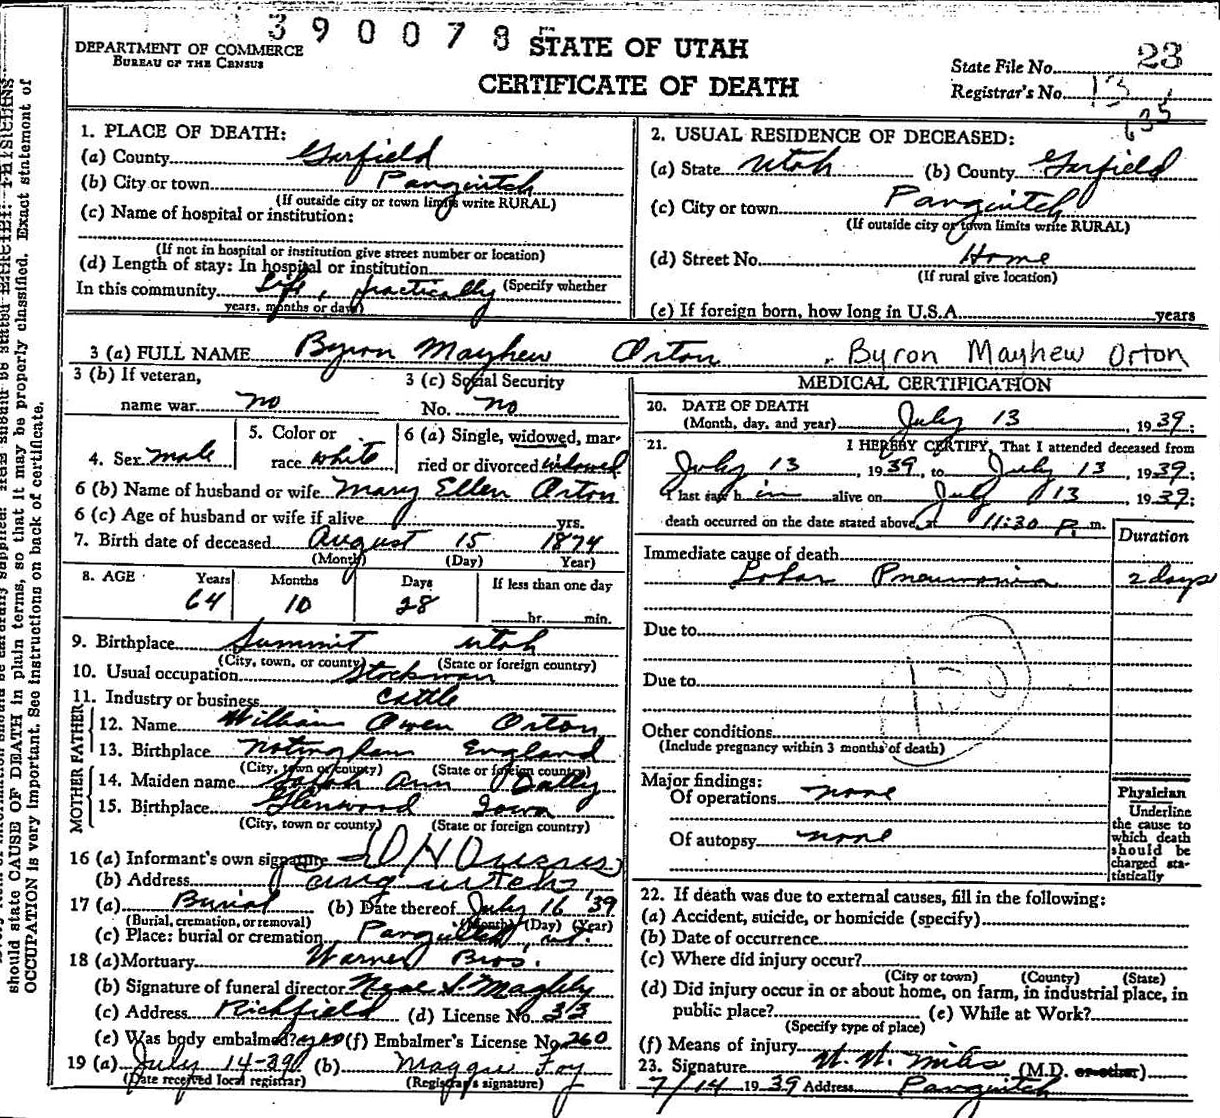 390078
DEPARTMENT OF COMMERCE
BUREAU OF THE CENSUS
STATE OF UTAH
CERTIFICATE OF DEATH
State File No. 23
Registrar's No. 13
635
1. PLACE OF DEATH:
(a) County Garfield
(b) City or town Panguitch
(If outside city or town limits write RURAL)
(c) Name of hospital or institution:
(If not in hospital or institution give street number or location)
(d) Length of stay: In hospital or institution
In this community Life, practically (Specify whether
years, months or days)
2. USUAL RESIDENCE OF DECEASED:
(a) State Utah (b) County Garfield
(c) City or town Panguitch
(If outside city or town limits write RURAL)
(d) Street No. Home
(If rural give location)
(e) If foreign born, how long in U.S.A. years
3 (a) FULL NAME Byron Mayhew Orton Byron Mayhew Orton
3 (b) If veteran,
name war no
3 (c) Social Security
No. no
4. Sex male
5. Color or
race white
6 (a) Single, widowed, mar-
ried or divorced widowed
6 (b) Name of husband or wife Mary Ellen Orton
6 (c) Age of husband or wife if alive yrs.
7. Birth date of deceased August 15 1874
(Month) (Day) Year)
8. AGE Years Months Days If less than one day
64 10 28 hr. min.
9. Birthplace Summit Utah
(City, town, or county) (State or foreign country)
10. Usual occupation Stockman
11. Industry or business Cattle
FATHER
12. Name William Owen Orton
13. Birthplace Notingham England
(City, town or county) (State or foreign country)
MOTHER
14. Maiden name Sarah Ann Dally
15. Birthplace Glenwood Iowa
(City, town or county) (State or foreign country)
16 (a) Informant's own signature
(b) Address Panguitch
17 (a) Burial (b) Date thereof July 16 '39
(Burial, cremation, or removal) (Month) (Day) (Year)
(c) Place: burial or cremation Panguitch, ut.
18 (a) Mortuary Warner Bros.
(b) Signature of funeral director Neal S. Magleby
(c) Address Richfield (d) License No. 33
(e) Was body embalmed? yes (f) Embalmer's License No. 260
19 (a) July 14-39 (b) Maggie Foy
(Date received local registrar) (Registrar's signature)
MEDICAL CERTIFICATION
20. DATE OF DEATH
(Month, day, and year) July 13, 1939;
21. I HEREBY CERTIFY, That I attended deceased from
July 13 1939, to July 13, 1939;
I last saw him alive on July 13, 1939;
death occurred on the date stated above, at 11:30 P. m.
Duration
Immediate cause of death
Lobar Pneumonia 2 days
Due to
Due to
Other conditions
(Include pregnancy within 3 months of death)
Major findings:
Of operations none
Of autopsy none
Physician
Underline
the cause to
which death
should be
charged sta-
tistically
22. If death was due to external causes, fill in the following:
(a) Accident, suicide, or homicide (specify)
(b) Date of occurrence
(c) Where did injury occur?
(City or town) (County) (State)
(d) Did injury occur in or about home, on farm, in industrial place, in
public place? (e) While at Work?
(Specify type of place)
(f) Means of injury
23. Signature W. W. Miles (M.D. or other)
7/14 1939 Address Panguitch
should state CAUSE OF DEATH in plain terms, so that it may be properly classified. Exact statement of
OCCUPATION is very important. See instructions on back of certificate.